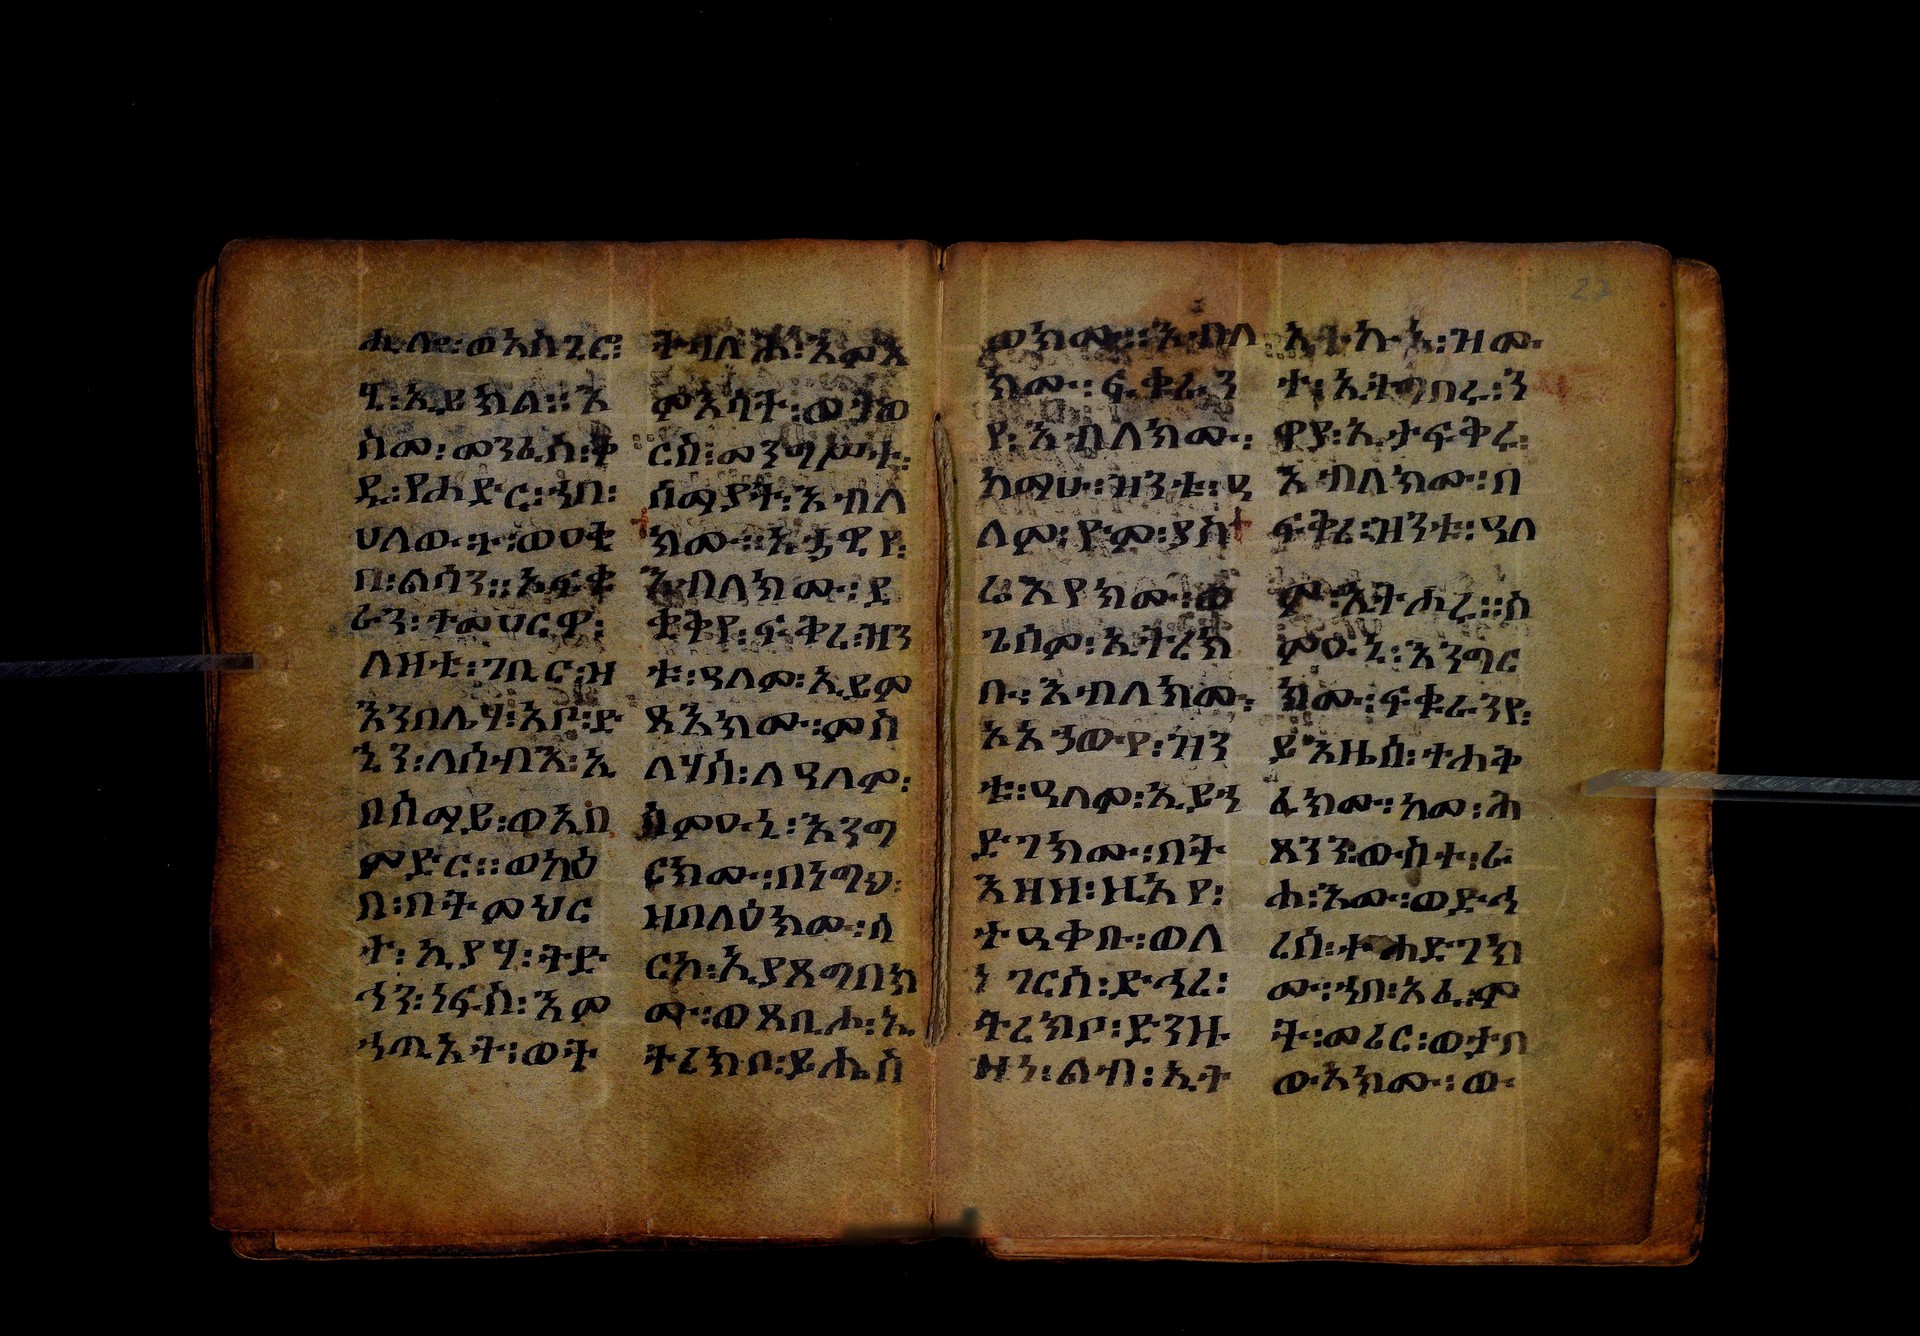 ሒለዌ፡ወአስጊሮ፡
ሂ፡ኢይክል።እ
ስመ፡መንፈስ፡ቅ
ዱ፡የሐድር፡ኀበ፡
ሀለወ፡ት፡ወዐቂ
በ፡ልሳን።አፍቁ
ራን፡ተመሀርዎ፡
ለዛቲ፡ገቢር፡ዝ
እንበሌሃ፡አቦ፡ድ
ኂን፡ለሰብእ፡ኢ
በሰማይ፡ወኢበ
ምድር።ወአዕ
በ፡በትምህር
ት፡ኢያሃ፡ትድ
ኅን፡ነፍስ፡እም
ኀጢአት፡ወት
ትባላሕ፡እምእ
ምእሳት፡ወትወ
ርስ፡መንግሥት፡
ሰማያት፡እብለ
ክሙ።አኃዊየ፡
እብለክሙ፡ደ
ቂቅየ፡ፍቅረ፡ዝን
ቱ፡ዓለም፡ኢይም
ጻእክሙ፡ምስ
ለሃሰ፡ለዓለም፡
ስምዑኒ፡እንግ
ርክሙ፡በነግህ፡
ዘበለዕክሙ፡ሰ
ርከ፡ኢያጸግበክ
ሙ፡ወጸቢሖ፡ኢ
ትረክቦ፡ይሔስ
ወክሙ።እብለ
ክሙ፡ፍቁራን
የ፡እብለክሙ፡
ከማሁ።ዝንቱ፡ዓ
ለም፡ዮም፡ያስ
ሬእየክሙ፡ወ
ጌሰም፡ኢትረክ
ቡ፡እብለክሙ፡
አአኀውየ፡ዝን
ቱ፡ዓለም፡ኢይኀ
ድገክሙ፡በት
እዛዘ፡ዚአየ፡
ትዓቀቡ፡ወለ
ነገርሰ፡ድኅረ፡
ትረክቦ፡ድንዙ
ዛነ፡ልብ፡ኢት
ኢትኩኑ፡ዝሙ
ተ፡ኢትግበሩ፡ን
ዋያ፡ኢታፍቅሩ፡
እብለክሙ፡በ
ፍቅረ፡ዝንቱ፡ዓለ
ም፡ኢትሐሩ።ስ
ምዑኒ፡እንግር
ክሙ፡ፍቁራንየ፡
ይእዜሰ፡ተሐቅ
ፈክሙ፡ከመ፡ሕ
ጻንን፡ውስተ፡ራ
ሐ፡እሙ፡ወድኅ
ረሰ፡ተሐድገክ
ሙ፡ኀበ፡አፈ፡ሞ
ት፡መሪር፡ወታበ
ውኡክሙ፡ው